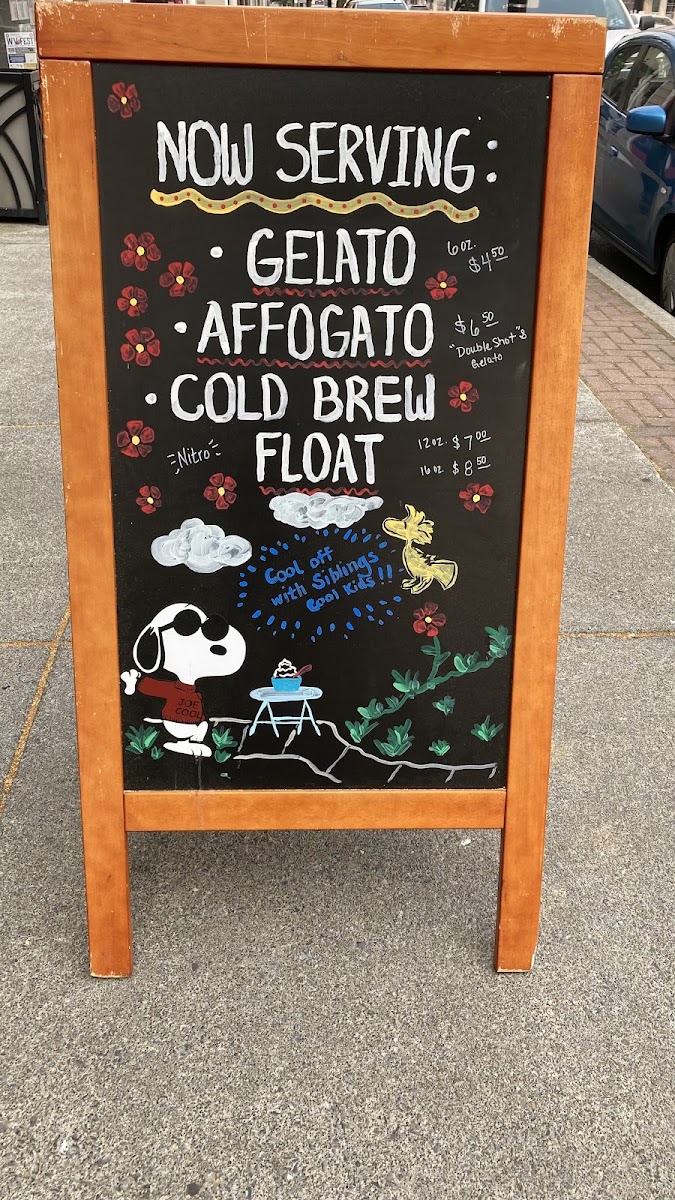 WVFEST
NOW SERVING:
• GELATO
6 oz.
$4.50
• AFFOGATO
$6.50
"Double Shot" &
Gelato
• COLD BREW
FLOAT
Nitro
12 oz. $7.00
16 oz $8.50
Cool off
with Siblings
Cool Kids!!
JOE
COOL